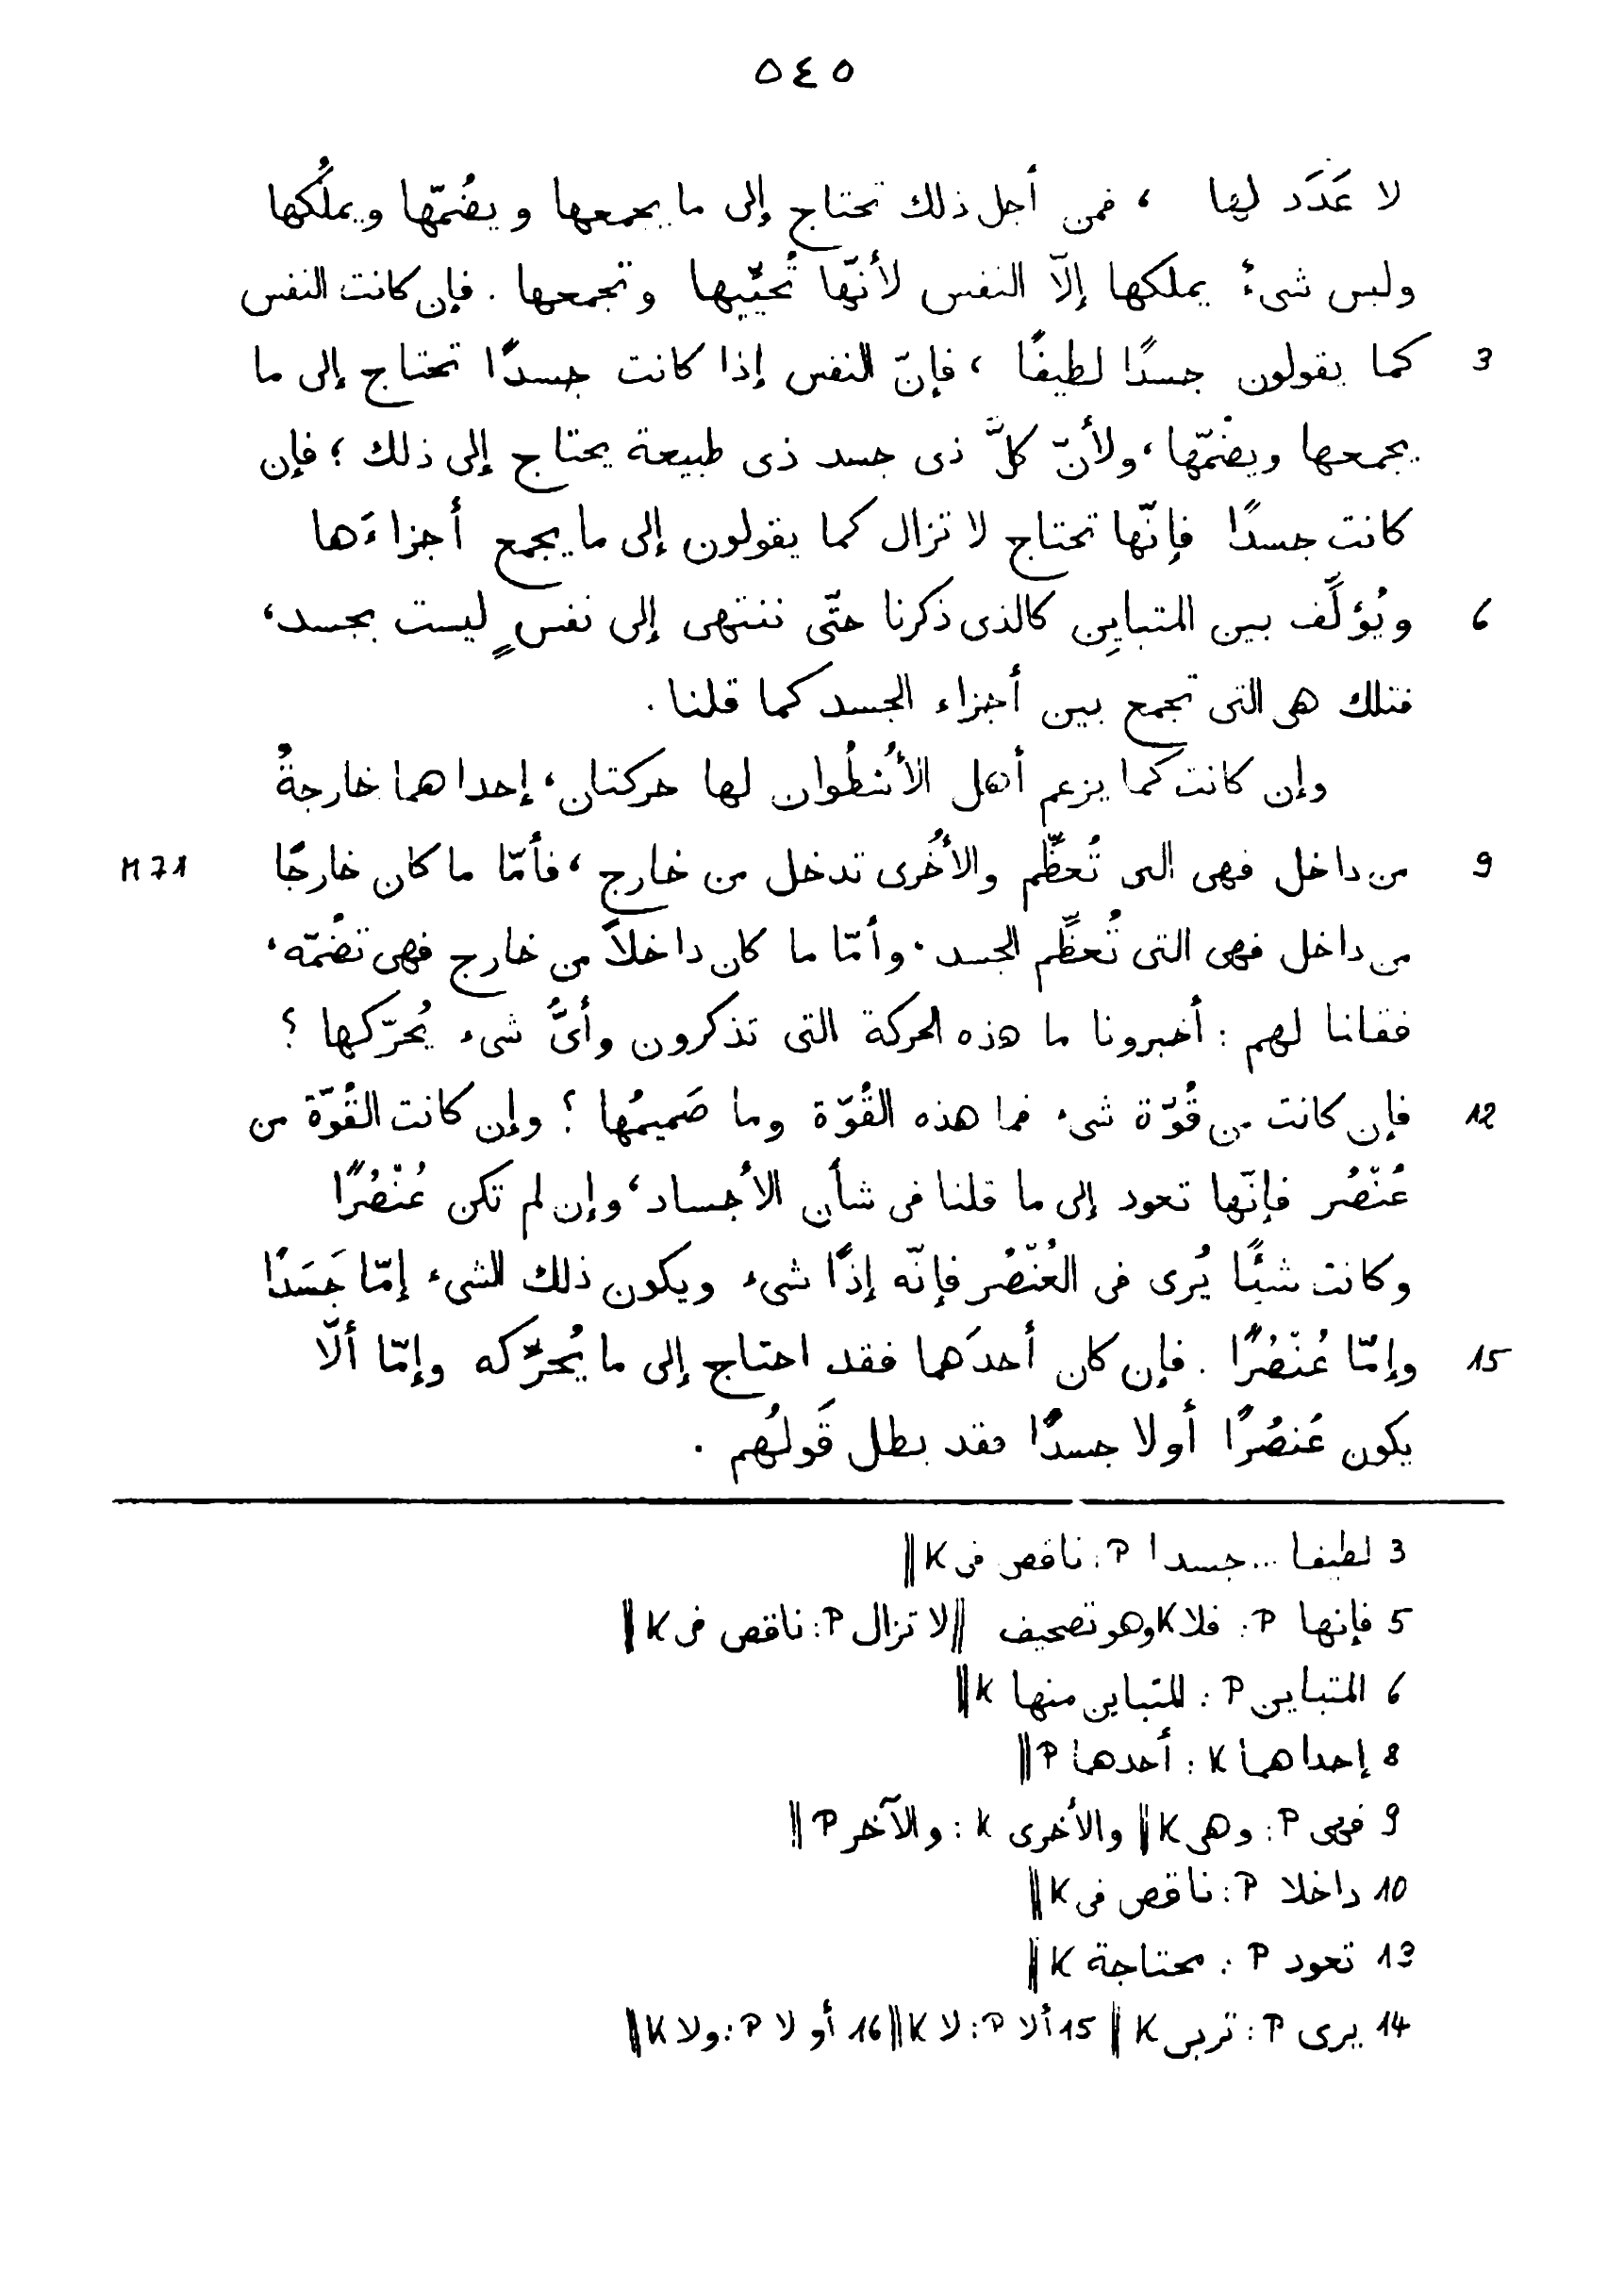 ٥٤٥
لا عَدَد لها ، فمن أجل ذلك تحتاج إلى ما يجمعها ويضُمّها ويملُكها
وليس شىءٌ يملكها إلّا النفس لأنّها تُحيِّيها وتجمعها . فإن كانت النفس
3 كما يقولون جسدًا لطيفًا ، فإنّ النفس إذا كانت جسدًا تحتاج إلى ما
يجمعها ويضُمّها ، ولأنّ كلَّ ذى جسد ذى طبيعة يحتاج إلى ذلك ؛ فإن
كانت جسدًا فإنّها تحتاج لا تزال كما يقولون إلى ما يجمع أجزاءَها
6 ويُؤلِّف بين المتباين كالذى ذكرنا حتّى ننتهى إلى نفسٍ ليست بجسد ،
فتلك هى التى تجمع بين أجزاء الجسد كما قلنا .
وإن كانت كما يزعم أهل الأُسْطُوان لها حركتان ، إحداهما خارجةُ
9 من داخل فهى التى تُعظِّم والأُخرى تدخل من خارج ، فأمّا ما كان خارجًا M 71
من داخل فهى التى تُعظِّم الجسد . وأمّا ما كان داخلاً من خارج فهى تضُمّه ،
فقلنا لهم : أخبرونا ما هذه الحركة التى تذكرون وأىُّ شىء يُحرّكها ؟
12 فإن كانت من قُوّة شىء فما هذه القُوّة وما صَميمُها ؟ وإن كانت القُوّة من
عُنْصُر فإنّها تعود إلى ما قلنا فى شأن الأجساد ، وإن لم تكن عُنْصُرًا
وكانت شيئًا يُرى فى العُنْصُر فإنّه إذًا شىء ويكون ذلك الشىء إمّا جَسَدًا
15 وإمّا عُنْصُرًا . فإن كان أحدَهما فقد احتاج إلى ما يُحرِّكه وإمّا ألّا
يكون عُنصُرًا أو لا جسدًا فقد بطل قَولُهم .
3 لطيفا ... جسدا P : ناقص فى K ||
5 فإنها P : فلا K وهو تصحيف || لا تزال P : ناقص فى K ||
6 المتباين P : للتباين منها K ||
8 إحداهما K : أحدهما P ||
9 فهى P : وهى K || والأخرى K : والآخر P ||
10 داخلا P : ناقص فى K ||
13 تعود P : محتاجة K ||
14 يرى P : تربى K || 15 ألا P : لا K || 16 أو لا P : ولا K ||